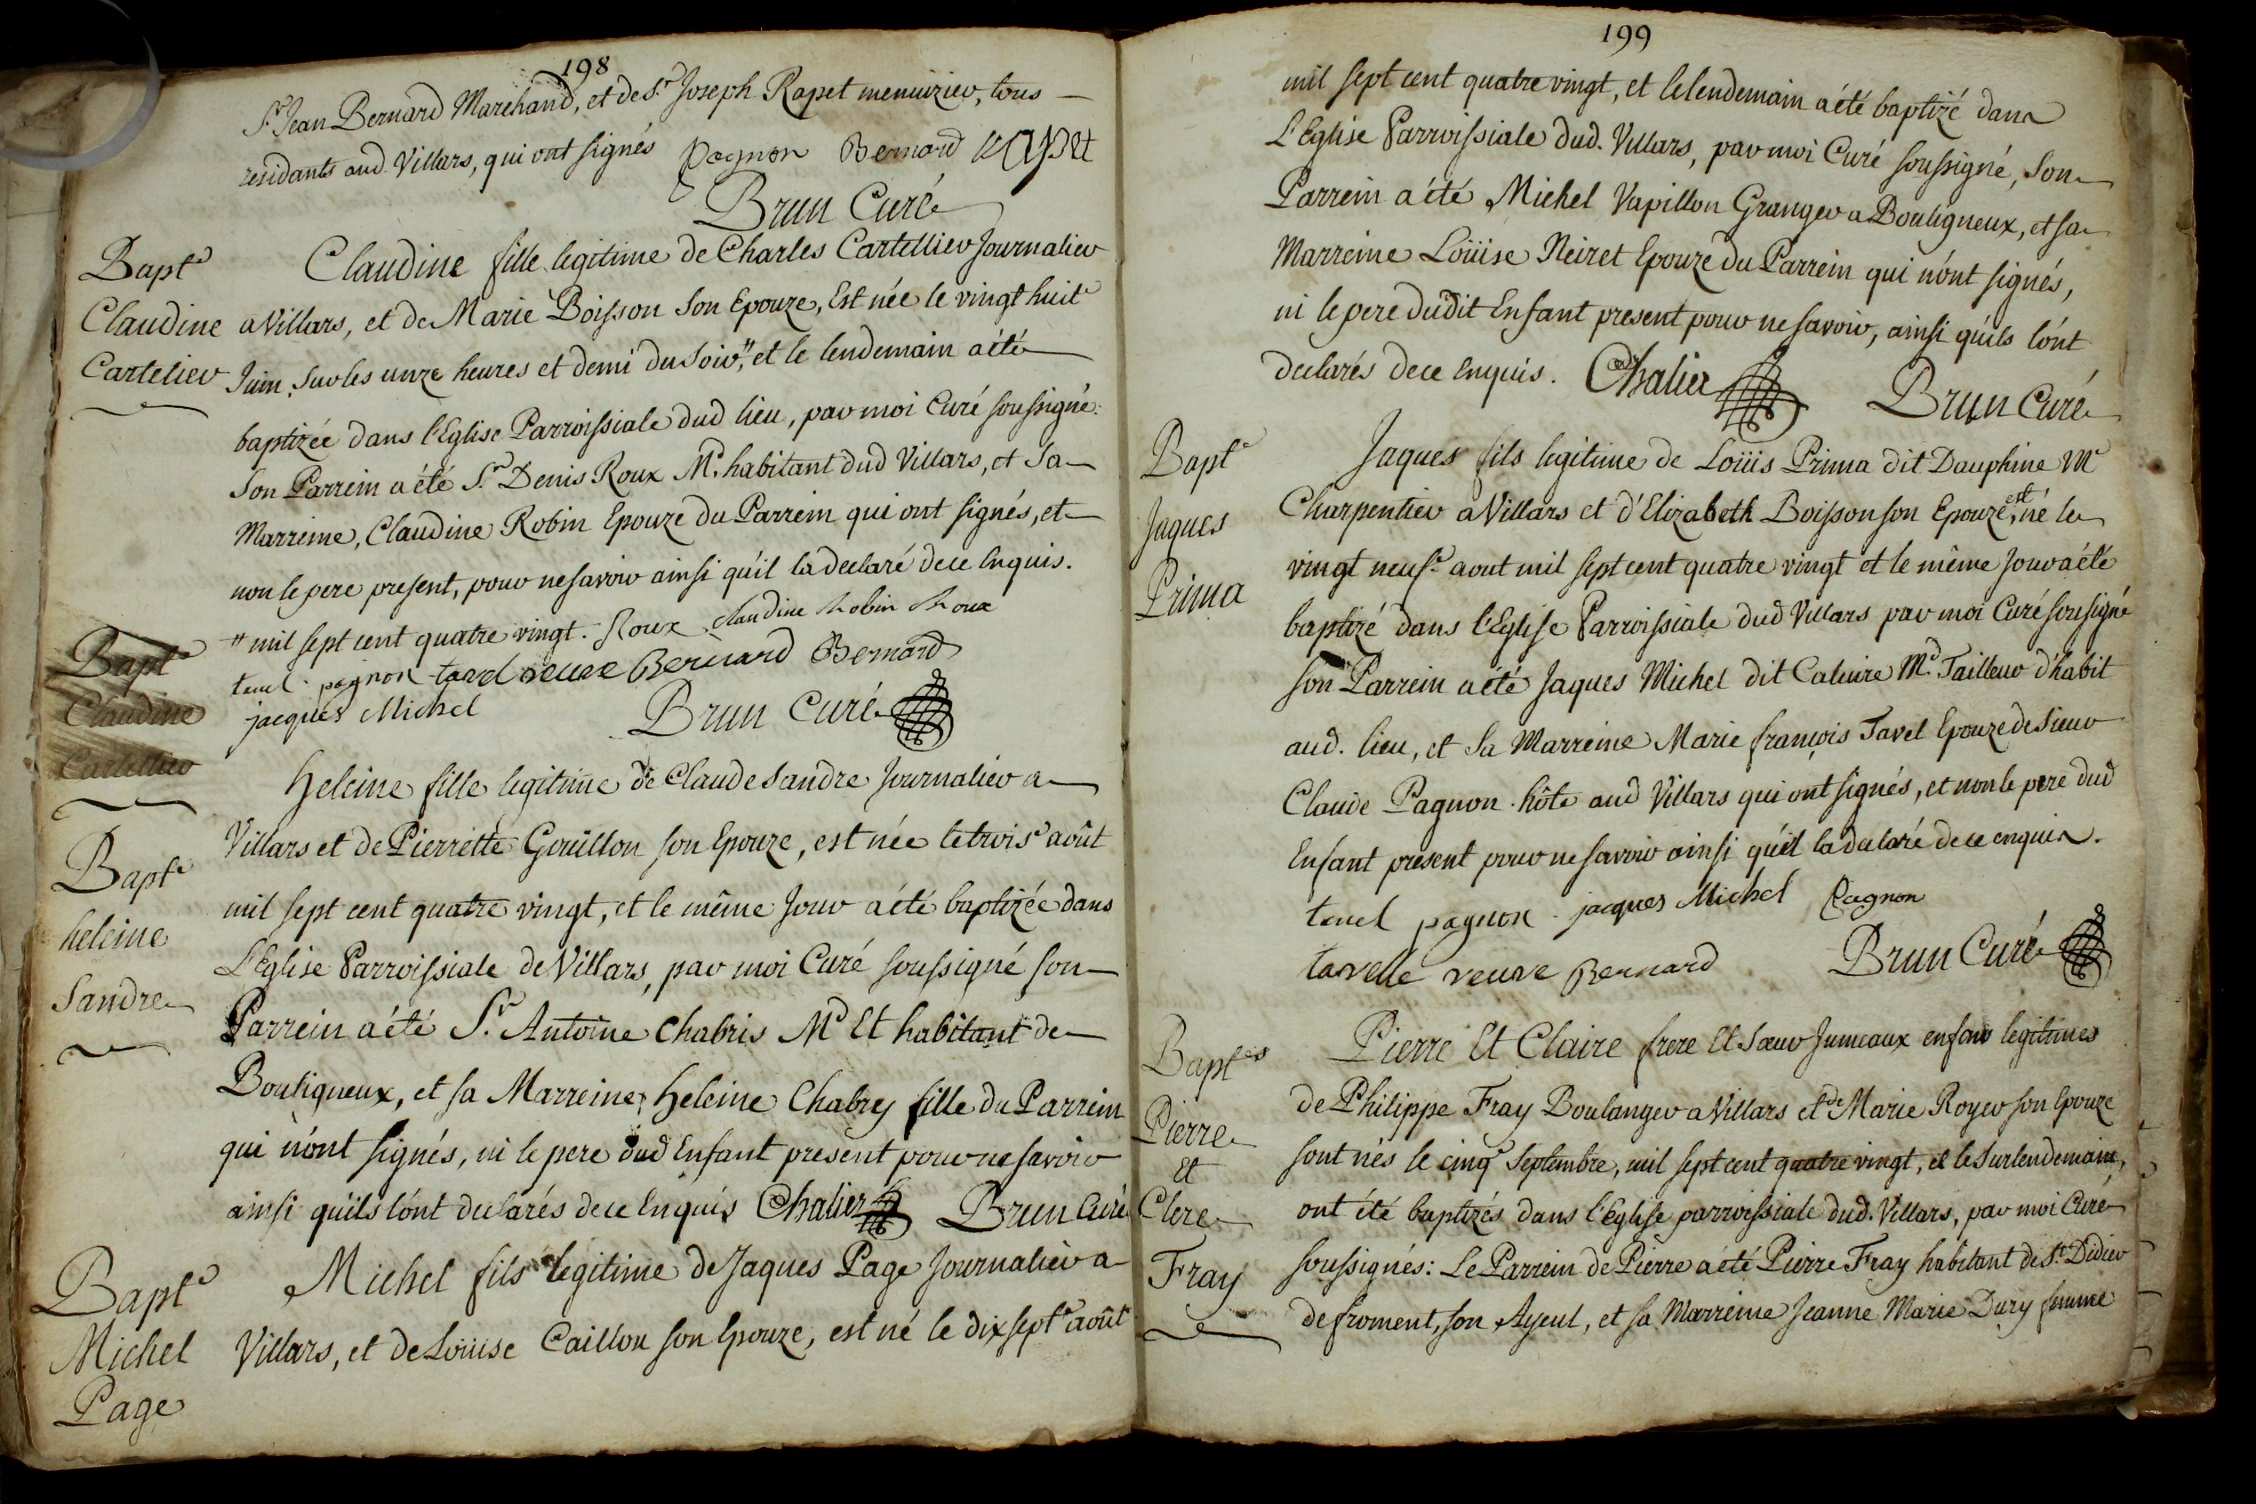 198
Sr. Jean Bernard Marchand, et de Sr. Joseph Rapet menuizier, tous
residants aud. Villars, qui ont signés Pagnon Bernard Rapet
Brun Curé
Bapte
Claudine
Cartelier
Claudine fille legitime de Charles Cartellier Journalier
a Villars, et de Marie Boisson Son Epouze, Est née le vingt huite
Juin, Sur les unze heures et demi du Soir," et le lendemain a été
baptizée dans l'Eglise Parroissiale dud lieu, par moi Curé soussigné:
Son Parrein a été Sr. Denis Roux Md. habitant dud Villars, et Sa
Marreine, Claudine Robin Epouze du Parrein qui ont signés, et
non le pere present, pour ne savoir ainsi qu'il la declaré de ce Enquis.
" mil sept cent quatre vingt. Roux Claudine Robin Roux
pagnon veuve Bernard Bernard
jacques Michel Brun Curé
Bapte
Claudine
Cartellier
Bapte
heleine
Sandre
Heleine fille legitime de Claude Sandre Journalier a
Villars et de Pierrette Goüillon son Epouze, est née le troise août
mil sept cent quatre vingt, et le même Jour a été baptizée dans
L'Eglise Parroissiale de Villars, par moi Curé soussigné son
Parrein a été Sr. Antoine Chabris Md Et habitant de
Bouligneux, et sa Marreine, Heleine Chabry fille du Parrein
qui n'ont signés, ni le pere dud Enfant present pour ne savoir
ainsi qu'ils l'ont declarés de ce Enquis Chalier Brun Curé
Bapte
Michel
Page
Michel fils legitime de Jaques Page Journalier a
Villars, et de Loüise Caillon son Epouze, est né le dix septe août
199
mil sept cent quatre vingt, et le lendemain a été baptizé dans
L'Eglise Parroissiale dud. Villars, par moi Curé soussigné, Son
Parrein a été Michel Vapillon Granger a Bouligneux, et sa
Marreine Loüise Neiret Epouze du Parrein qui n'ont signés,
ni le pere dudit Enfant present pour ne savoir, ainsi qu'ils l'ont
declarés de ce Enquis. Chalier Brun Curé
Bapte
Jaques
Prima
Jaques fils legitime de Loüis Prima dit Dauphine Me
Charpentier a Villars et d'Elizabeth Boisson son Epouze, est né le
vingt neufe aout mil sept cent quatre vingt et le même Jour a été
baptizé dans l'Eglise Parroissiale dud Villars par moi Curé sousigné
son Parrein a été Jaques Michel dit Caluire Md. Tailleur d'habit
aud. lieu, et Sa Marreine Marie françois Tavel Epouze de Sieur
Claude Pagnon hôte aud Villars qui ont signés, et non le pere dud
Enfant present pour ne savoir ainsi qu'il la declaré de ce enquis.
tavel pagnon jacques Michel Pagnon
tavelle veuve Bernard Brun Curé
Baptes
Pierre
Et
Clere
Fray
Pierre Et Claire frere Et Sœur Jumeaux enfans legitimes
de Philippe Fray Boulanger a Villars et de Marie Royer son Epouze
sont nés le cinqe Septembre, mil sept cent quatre vingt, et le Surlendemain,
ont été baptizés dans l'Eglise parroissiale dud. Villars, par moi Curé
soussignés: Le Parrein de Pierre a été Pierre Fray habitant de St. Didier
de froment, son Ayeul, et sa Marreine Jeanne Marie Dury femme